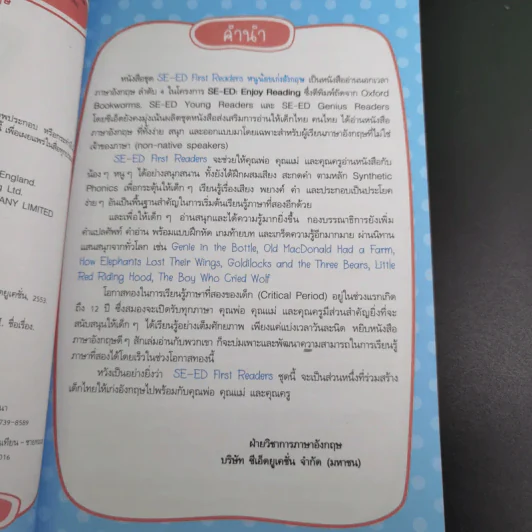 คำนำ
หนังสือชุด SE-ED First Readers หนูน้อยเก่งอังกฤษ เป็นหนังสืออ่านนอกเวลา
ภาษาอังกฤษ ลำดับ 4 ในโครงการ SE-ED: Enjoy Reading ซึ่งตีพิมพ์ถัดจาก Oxford
Bookworms, SE-ED Young Readers และ SE-ED Genius Readers
โดยซีเอ็ดยังคงมุ่งเน้นผลิตชุดหนังสือส่งเสริมการอ่านให้เด็กไทย คนไทย ได้อ่านหนังสือ
ภาษาอังกฤษ ที่ทั้งง่าย สนุก และออกแบบมาโดยเฉพาะสำหรับผู้เรียนภาษาอังกฤษที่ไม่ใช่
เจ้าของภาษา (non-native speakers)
SE-ED First Readers จะช่วยให้คุณพ่อ คุณแม่ และคุณครูอ่านหนังสือกับ
น้อง ๆ หนู ๆ ได้อย่างสนุกสนาน ทั้งยังได้ฝึกผสมเสียง สะกดคำ ตามหลัก Synthetic
Phonics เพื่อกระตุ้นให้เด็ก ๆ เรียนรู้เรื่องเสียง พยางค์ คำ และประกอบเป็นประโยค
ง่าย ๆ อันเป็นพื้นฐานสำคัญในการเริ่มต้นเรียนรู้ภาษาที่สองอีกด้วย
และเพื่อให้เด็ก ๆ อ่านสนุกและได้ความรู้มากยิ่งขึ้น กองบรรณาธิการยังเพิ่ม
คำแปลศัพท์ คำอ่าน พร้อมแบบฝึกหัด เกมท้ายบท และเกร็ดความรู้อีกมากมาย ผ่านนิทาน
แสนสนุกจากทั่วโลก เช่น Genie in the Bottle, Old MacDonald Had a Farm,
How Elephants Lost Their Wings, Goldilocks and the Three Bears, Little
Red Riding Hood, The Boy Who Cried Wolf
โอกาสทองในการเรียนรู้ภาษาที่สองของเด็ก (Critical Period) อยู่ในช่วงแรกเกิด
ถึง 12 ปี ซึ่งสมองจะเปิดรับทุกภาษา คุณพ่อ คุณแม่ และคุณครูมีส่วนสำคัญยิ่งที่จะ
สนับสนุนให้เด็ก ๆ ได้เรียนรู้อย่างเต็มศักยภาพ เพียงแค่แบ่งเวลาวันละนิด หยิบหนังสือ
ภาษาอังกฤษดี ๆ สักเล่มอ่านกับพวกเขา ก็จะบ่มเพาะและพัฒนาความสามารถในการเรียนรู้
ภาษาที่สองได้โดยเร็วในช่วงโอกาสทองนี้
หวังเป็นอย่างยิ่งว่า SE-ED First Readers ชุดนี้ จะเป็นส่วนหนึ่งที่ร่วมสร้าง
เด็กไทยให้เก่งอังกฤษไปพร้อมกับคุณพ่อ คุณแม่ และคุณครู
ฝ่ายวิชาการภาษาอังกฤษ
บริษัท ซีเอ็ดยูเคชั่น จำกัด (มหาชน)
England.
ng Ltd.
ANY LIMITED
ดยูเคชั่น, 2553
ชื่อเรื่อง.
739-8589
016